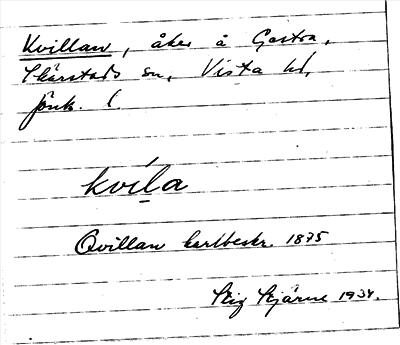 Kvillan, åker å Gastra,
Skärstads sn, Vista hd,
Jönk. l.
kvila
Qvillan kartbeskr. 1875
Stig Stjärne 1934.